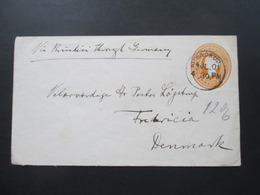 Via Brindisi through Germany
JUL 01
4.30 PM
Velærværdige Hr Pastor Løgstrup
Fredericia
Denmark